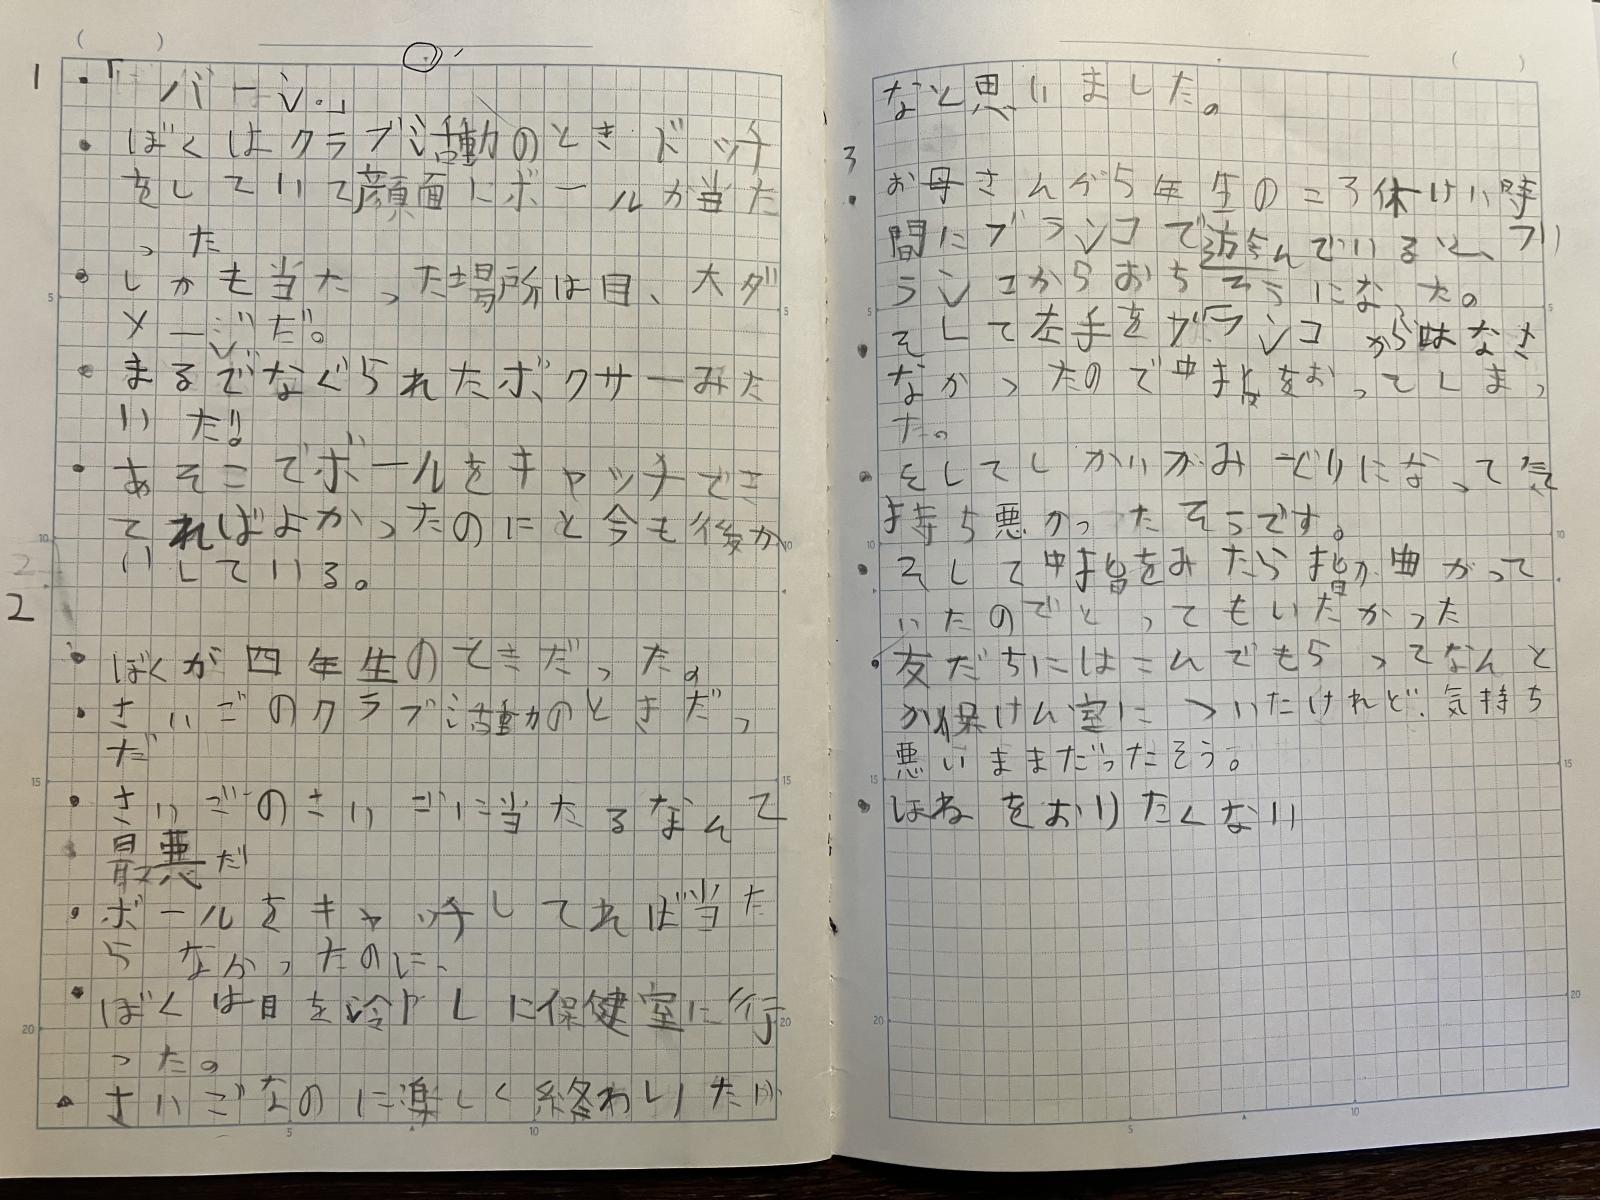 1
・「バーン。」
・ぼくはクラブ活動のときドッチ
をしていて顔面にボールが当た
った
・しかも当たった場所は目、大ダ
メージだ。
・まるでなぐられたボクサーみた
いだ!!
・あそこでボールをキャッチでき
てればよかったのにと今も後か
いしている。
2
・ぼくが四年生のときだった。
・さいごのクラブ活動のときだっ
だ
・さいごのさいごに当たるなんて
最悪だ
・ボールをキャッチしてれば当た
らなかったのに、
・ぼくは目を冷やしに保健室に行
った。
・さいごなのに楽しく終わりたい
なと思いました。
3
・お母さんが5年生のころ休けい時
間にブランコで遊んでいると、ブ
ランコからおちそうになった。
・そして左手をブランコからはなさ
なかったので中指をおってしまっ
た。
・そしてしかいがみどりになって気
持ち悪かったそうです。
・そして中指をみたら指が曲がって
いたのでとってもいたかった
・友だちにはこんでもらってなんと
か保けん室についたけれど、気持ち
悪いままだったそう。
・ほねをおりたくない